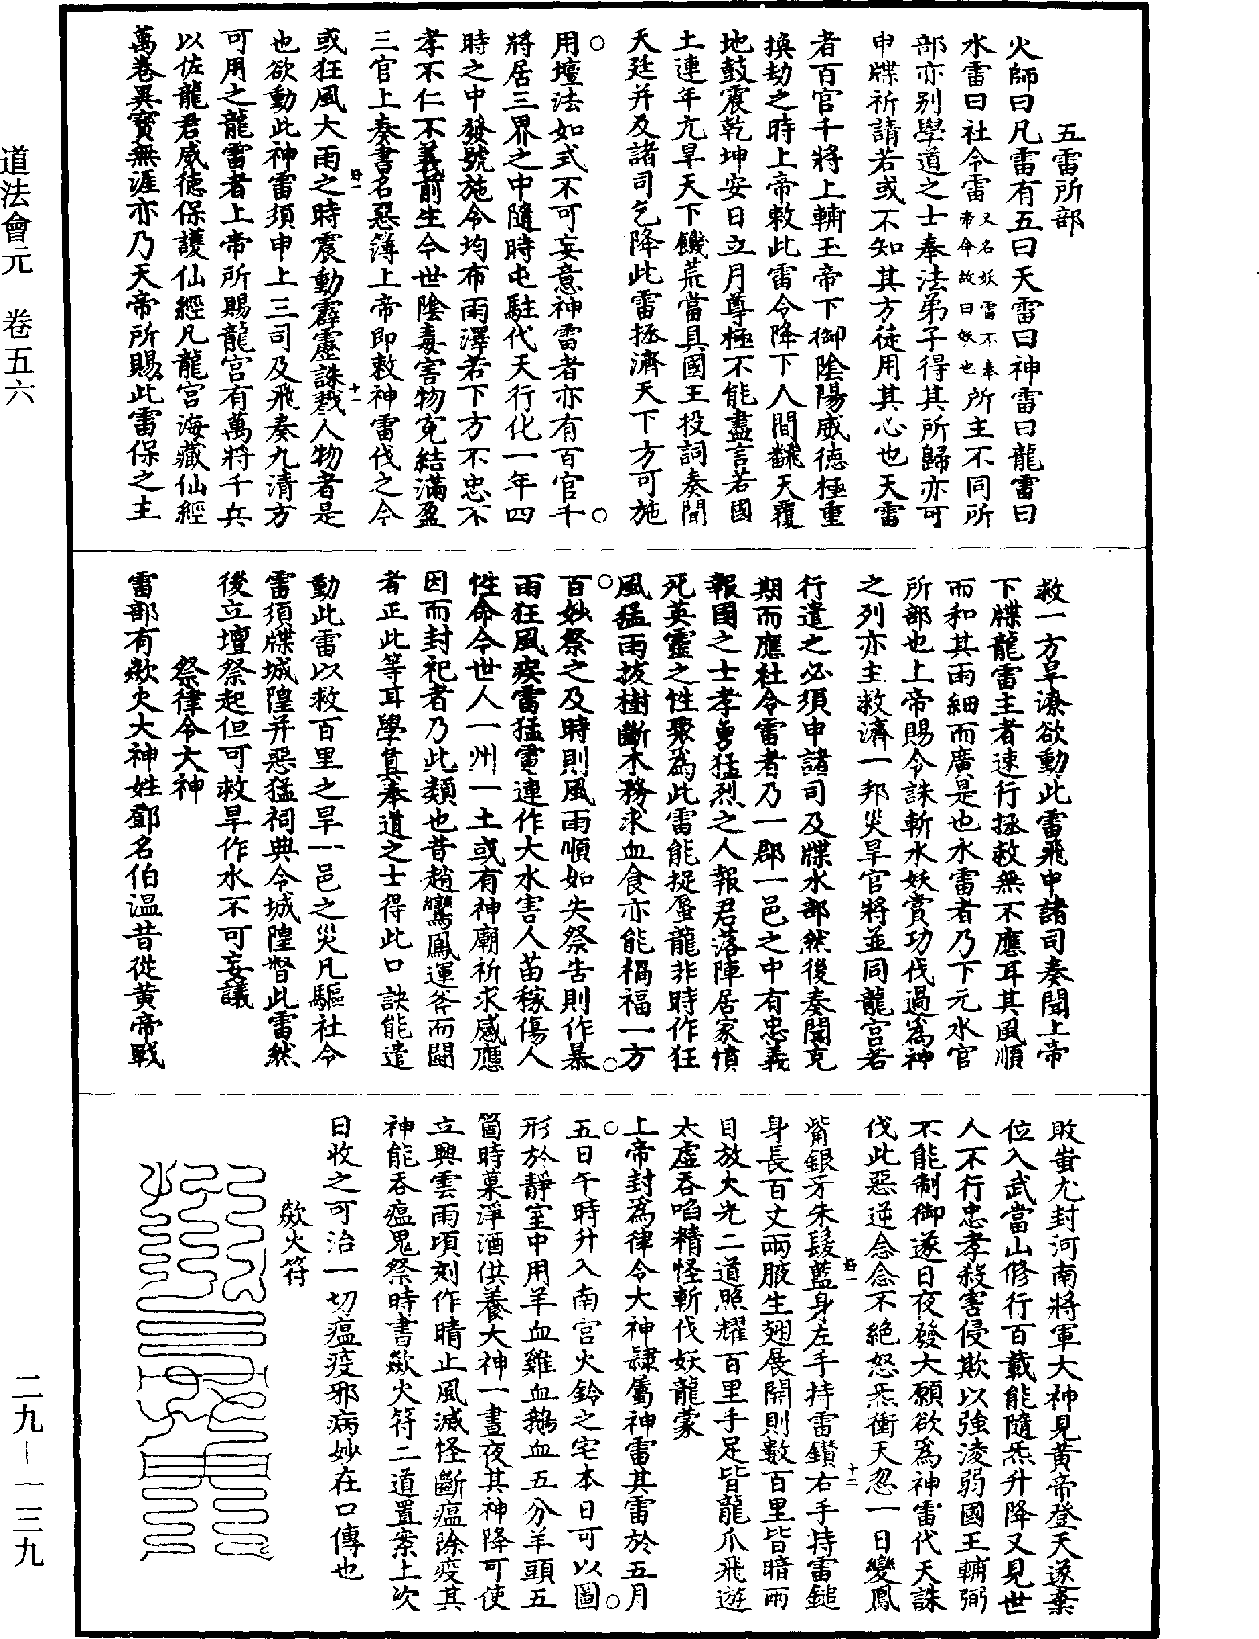 道法會元　卷五六
五雷所部
火師曰凡雷有五曰天雷曰神雷曰龍雷曰
水雷曰社令雷又名妖雷不奉帝命故曰妖也所主不同所
部亦别學道之士奉法弟子得其所歸亦可
申牒祈請若或不知其方徒用其心也天雷
者百官千將上輔玉帝下御陰陽威德極重
換劫之時上帝敕此雷令降下人間翻天覆
地鼓震乾坤安日立月尊極不能盡言若國
土連年亢旱天下饑荒當具國王投詞奏聞
天廷并及諸司乞降此雷拯濟天下方可施
用壇法如式不可妄意神雷者亦有百官千
將居三界之中隨時屯駐代天行化一年四
時之中發號施令均布雨澤若下方不忠不
孝不仁不義前生今世陰毒害物寃結滿盈
三官上奏書名惡簿上帝即敕神雷伐之令
或狂風大雨之時震動霹靂誅戮人物者是
也欲動此神雷須申上三司及飛奏九清方
可用之龍雷者上帝所賜龍宮有萬將千兵
以佐龍君威德保護仙經凡龍宮海藏仙經
萬卷異寶無涯亦乃天帝所賜此雷保之主
救一方旱潦欲動此雷飛申諸司奏聞上帝
下牒龍雷主者速行拯救無不應耳其風順
而和其雨細而廣是也水雷者乃下元水官
所部也上帝賜令誅斬水妖賞功伐過爲神
之列亦主救濟一邦災旱官將並同龍宮若
行遣之必須申諸司及牒水部然後奏聞克
期而應社令雷者乃一郡一邑之中有忠義
報國之士孝勇猛烈之人報君落陣居家憤
死英靈之性聚爲此雷能捉蜃龍非時作狂
風猛雨拔樹斷木務求血食亦能禍福一方
百妙祭之及時則風雨順如失祭告則作暴
雨狂風疾雷猛電連作大水害人苗稼傷人
性命今世人一州一土或有神廟祈求感應
因而封祀者乃此類也昔趙鸞鳳運斧而鬪
者正此等耳學眞奉道之士得此口訣能遣
動此雷以救百里之旱一邑之災凡驅社令
雷須牒城隍并惡猛祠典令城隍督此雷然
後立壇祭起但可救旱作水不可妄議
祭律令大神
雷部有歘火大神姓鄧名伯温昔從黄帝戰
敗蚩尤封河南將軍大神見黄帝登天遂棄
位入武當山修行百載能隨炁升降又見世
人不行忠孝殺害侵欺以強淩弱國王輔弼
不能制御遂日夜發大願欲爲神雷代天誅
伐此惡逆念念不絶怒炁衝天忽一日變鳳
觜銀牙朱髮藍身左手持雷鑽右手持雷鎚
身長百丈兩腋生翅展開則數百里皆暗兩
目放火光二道照耀百里手足皆龍爪飛遊
太虚吞啗精怪斬伐妖龍蒙
上帝封爲律令大神隸屬神雷其雷於五月
五日午時升入南宮火鈴之宅本日可以圖
形於靜室中用羊血雞血鵝血五分羊頭五
箇時菓淨酒供養大神一晝夜其神降可使
立興雲雨頃刻作晴止風滅怪斷瘟除疫其
神能吞瘟鬼祭時書歘火符二道置案上次
日收之可治一切瘟疫邪病妙在口傳也
歘火符
二九-一三九